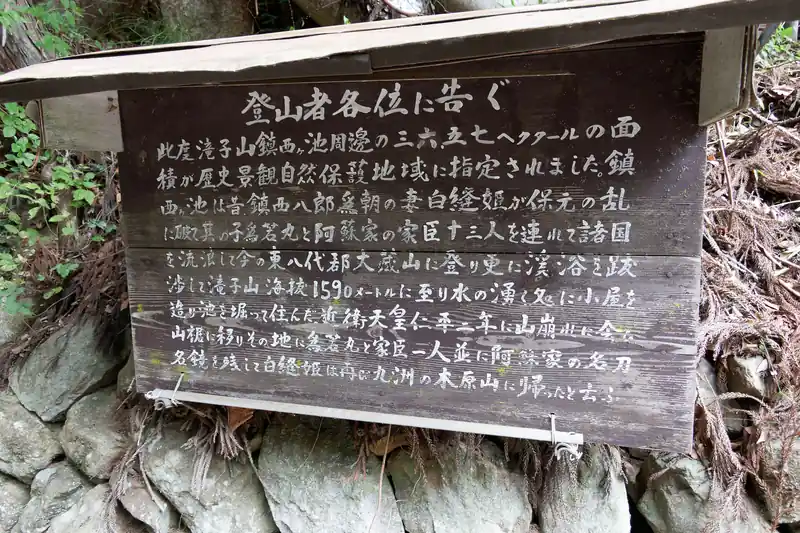 登山者各位に告ぐ
此度滝子山鎮西ヶ池周邉の三六五七ヘクタールの面
積が歴史景観自然保護地域に指定されました。鎮
西ヶ池は昔鎮西八郎爲朝の妻白縫姫が保元の乱
に破て其の子爲若丸と阿蘇家の家臣十三人を連れて諸国
を流浪して今の東八代郡大蔵山に登り更に渓谷を跋
渉して滝子山海抜1590メートルに至り水の湧く処に小屋を
造り池を堀って住んだ近衛天皇仁平二年に山崩れに会い
山根に移りその地に爲若丸と家臣一人並に阿蘇家の名刀
名鏡を残して白縫姫は再び九洲の木原山に帰ったと云ふ